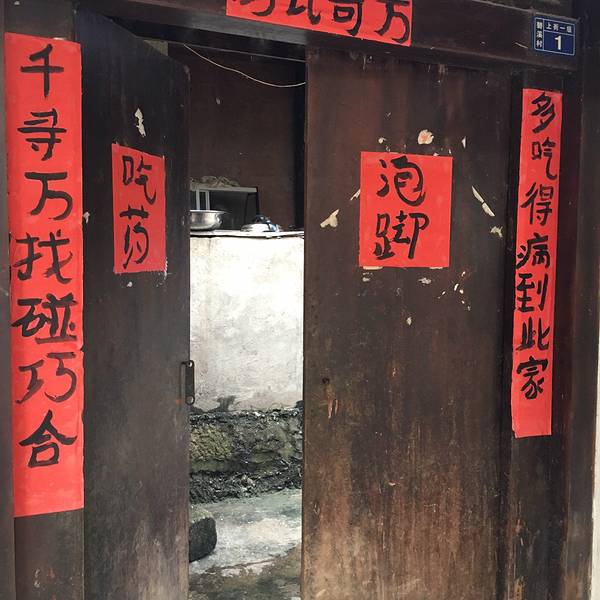 奇方
碧溪村
上街一组
1
多吃得病到此家
千寻万找碰巧合
吃药
泡脚